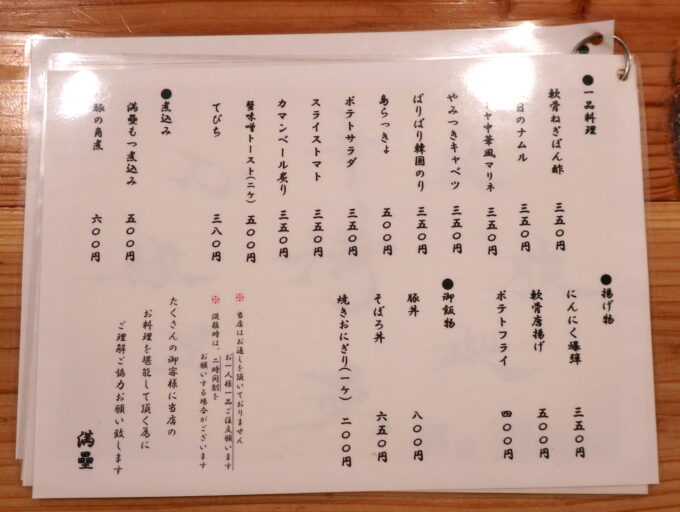 ●一品料理
軟骨ねぎぽん酢 三五〇円
日のナムル 三五〇円
ャ中華風マリネ 三五〇円
やみつきキャベツ 三五〇円
ぱりぱり韓国のり 三五〇円
島らっきょ 五〇〇円
ポテトサラダ 三五〇円
スライストマト 三五〇円
カマンベール炙り 三五〇円
蟹味噌トースト(二ケ) 五〇〇円
てびち 三八〇円
●煮込み
満塁もつ煮込み 五〇〇円
豚の角煮 六〇〇円
●揚げ物
にんにく爆弾 三五〇円
軟骨唐揚げ 五〇〇円
ポテトフライ 四〇〇円
●御飯物
豚丼 八〇〇円
そぼろ丼 六五〇円
焼きおにぎり(一ケ) 二〇〇円
※ 当店はお通しを頂いておりません
お一人様一品ご注文願います
※ 混雑時は、二時間制を
お願いする場合がございます
たくさんの御客様に当店の
お料理を堪能して頂く為に
ご理解ご協力お願い致します
満塁